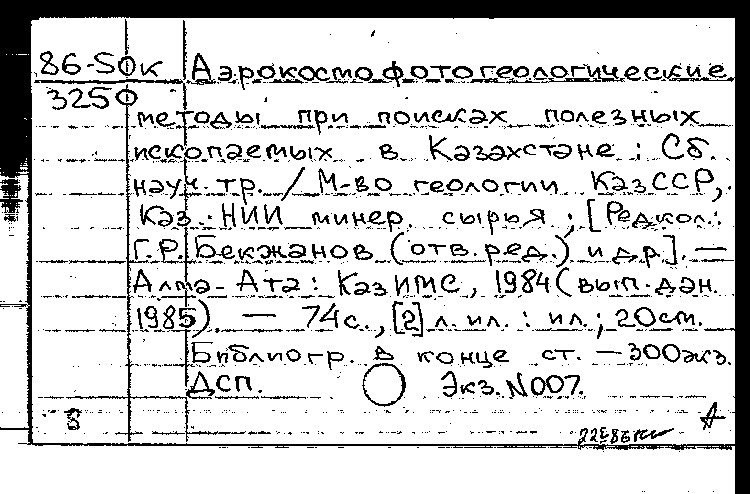 86-SOк Аэрокосмофотогеологические
3250
методы при поисках полезных
ископаемых в Казахстане: Сб.
науч. тр. / М-во геологии КазССР,
Каз. НИИ минер. сырья; [Редкол.:
Г.Р. Бекжанов (отв. ред.) и др.]. —
Алма-Ата: КазИМС, 1984 (вып. дан.
1985). — 74с., [2] л. ил.: ил.; 20см.
Библиогр. в конце ст. — 300экз.
ДСП. Экз. N007.